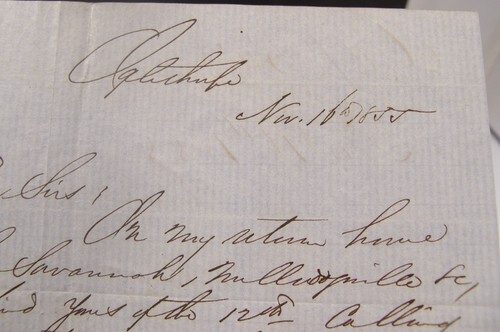 Oglethorpe
Nov. 16th 1855
Sirs,
On my return home
Savannah, Milledgeville &c,
yours of the 12th Calling